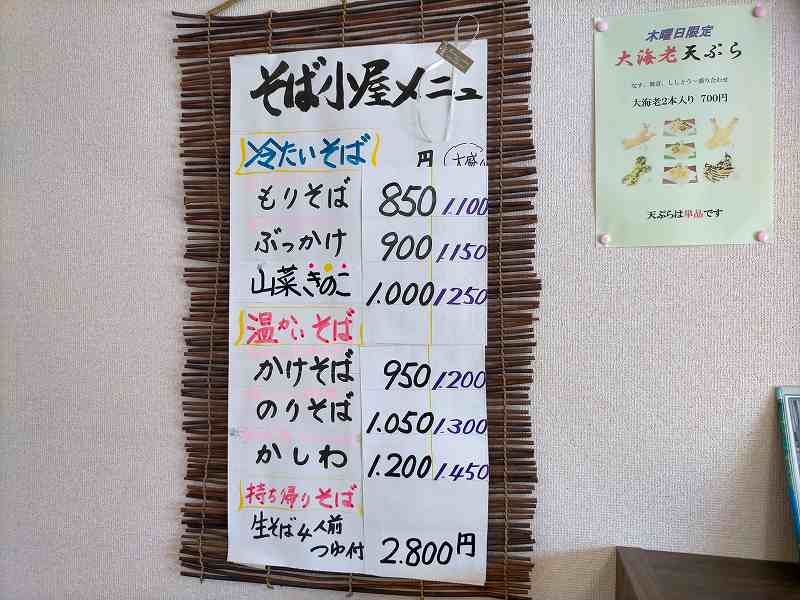 そば小屋メニュー
冷たいそば 円 大盛
もりそば 850 1.100
ぶっかけ 900 1.150
山菜きのこ 1.000 1250
温かいそば
かけそば 950 1.200
のりそば 1.050 1.300
かしわ 1.200 1.450
持ち帰りそば
生そば4人前
つゆ付 2.800円
木曜日限定
大海老天ぷら
大海老2本入り 700円
天ぷらは単品です